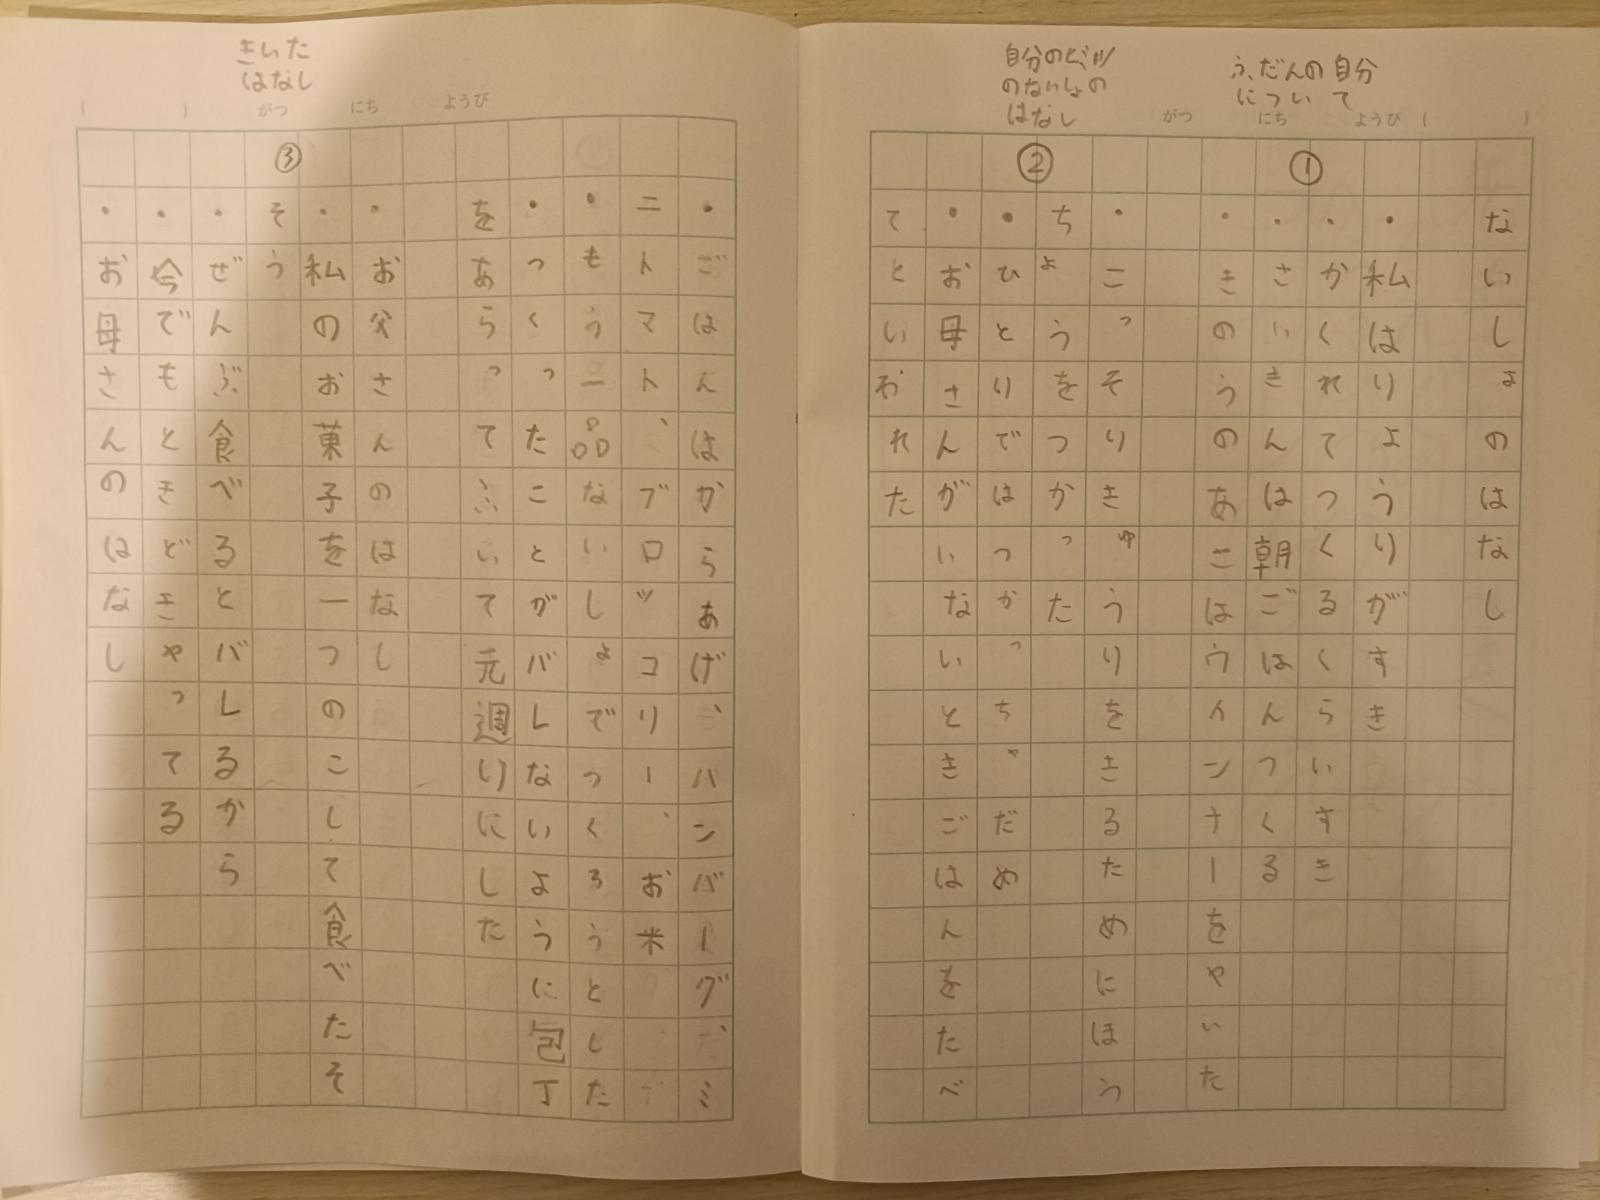 ふだんの自分
について
自分のヒミツ
のないしょの
はなし
がつ　にち　ようび（　）
ないしょのはなし
①
・私はりょうりがすき
・かくれてつくるくらいすき
・さいきんは朝ごはんつくる
・きのうのあさはウインナーをやいた
②
・こっそりきゅうりをきるためにほう
ちょうをつかった
・ひとりではつかっちゃだめ
・お母さんがいないときごはんをたべ
てといわれた
きいた
はなし
（　）がつ　にち　ようび
・ごはんはからあげ、ハンバーグ、ミ
ニトマト、ブロッコリー、お米
・もう一品ないしょでつくろうとした
・つくったことがバレないように包丁
をあらってふいて元週りにした
③
・お父さんのはなし
・私のお菓子を一つのこして食べたそ
そう
・ぜんぶ食べるとバレるから
・今でもときどきやってる
・お母さんのはなし